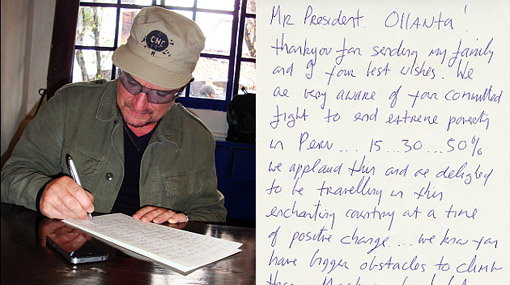 CNC
MR PRESIDENT Ollanta!
thankyou for sending my family
and I your best wishes. We
are very aware of your committed
fight to end extreme poverty
in Peru... 15...30...50%
we applaud this and are delighted
to be travelling in this
enchanting country at a time
of positive change... we know you
have bigger obstacles to climb